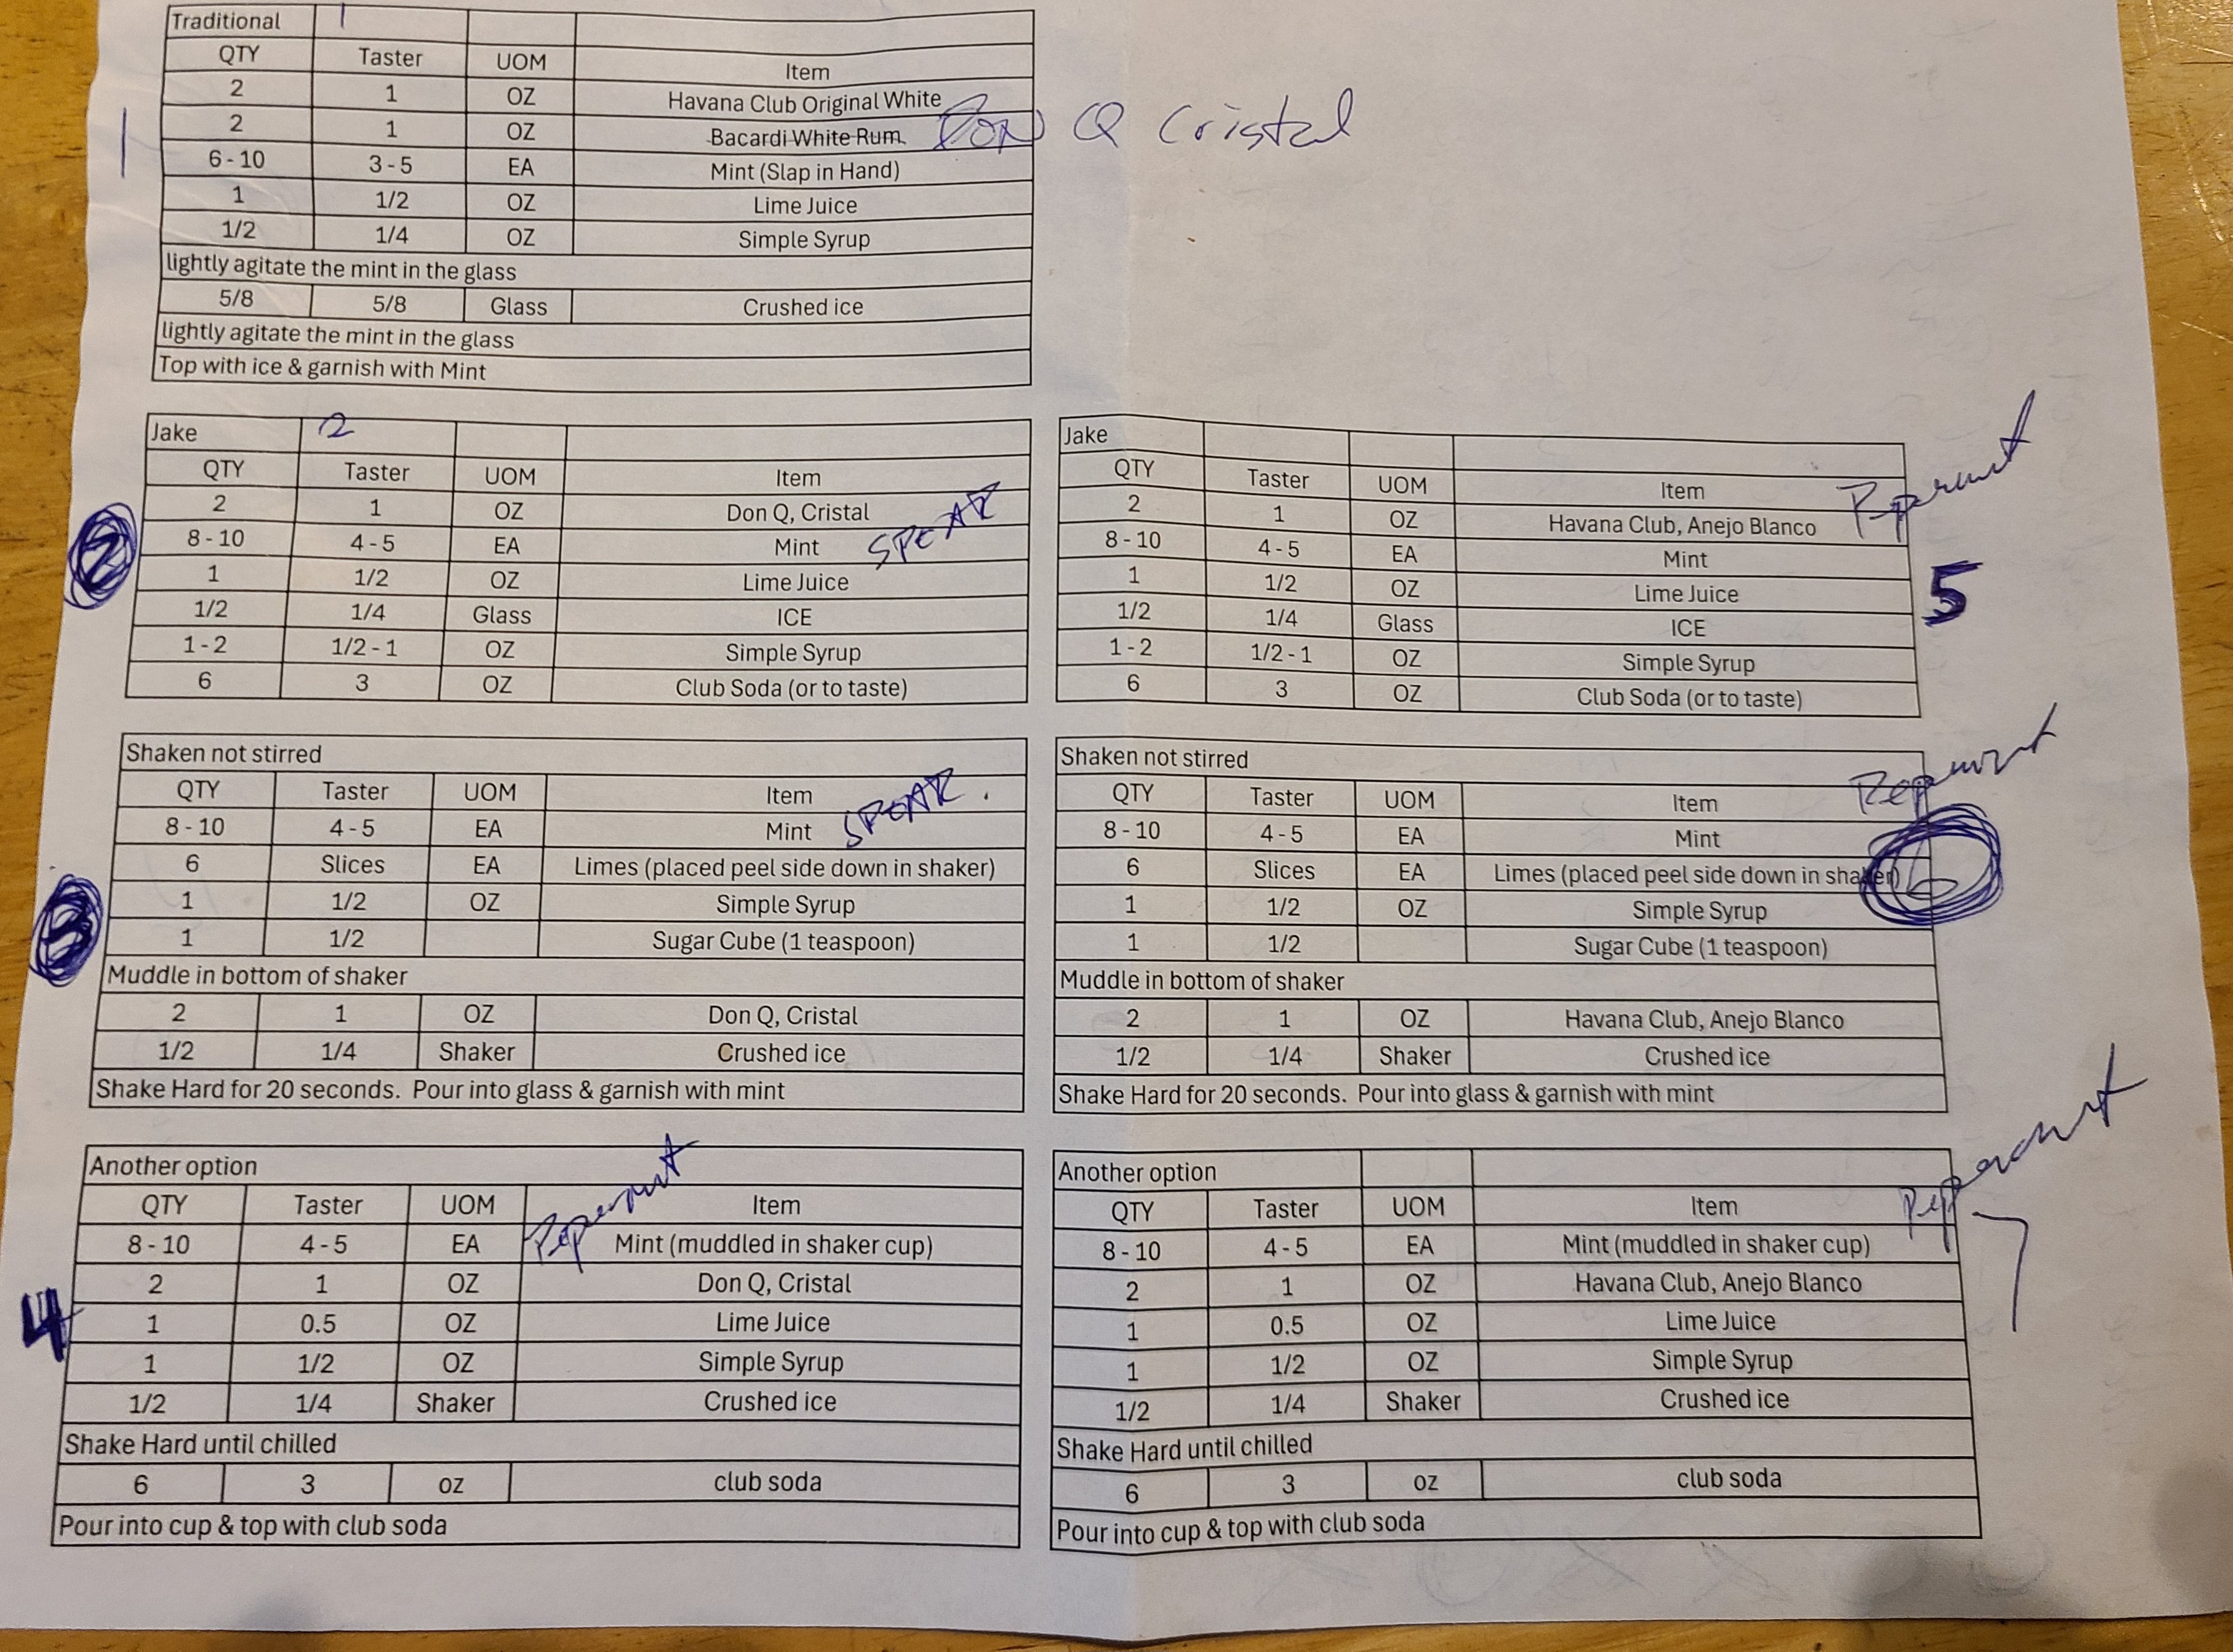 Traditional 1
QTY Taster UOM Item
2 1 OZ Havana Club Original White
2 1 OZ Bacardi White Rum Don Q Cristal
1
6 - 10 3 - 5 EA Mint (Slap in Hand)
1 1/2 OZ Lime Juice
1/2 1/4 OZ Simple Syrup
lightly agitate the mint in the glass
5/8 5/8 Glass Crushed ice
lightly agitate the mint in the glass
Top with ice & garnish with Mint
Jake 2
QTY Taster UOM Item
2 1 OZ Don Q, Cristal
2
8 - 10 4 - 5 EA Mint SPEAR
1 1/2 OZ Lime Juice
1/2 1/4 Glass ICE
1 - 2 1/2 - 1 OZ Simple Syrup
6 3 OZ Club Soda (or to taste)
Jake
QTY Taster UOM Item
2 1 OZ Havana Club, Anejo Blanco
8 - 10 4 - 5 EA Mint
1 1/2 OZ Lime Juice
5
1/2 1/4 Glass ICE
1 - 2 1/2 - 1 OZ Simple Syrup
6 3 OZ Club Soda (or to taste)
Shaken not stirred
QTY Taster UOM Item
8 - 10 4 - 5 EA Mint SPEAR.
6 Slices EA Limes (placed peel side down in shaker)
1 1/2 OZ Simple Syrup
3
1 1/2 Sugar Cube (1 teaspoon)
Muddle in bottom of shaker
2 1 OZ Don Q, Cristal
1/2 1/4 Shaker Crushed ice
Shake Hard for 20 seconds. Pour into glass & garnish with mint
Shaken not stirred
QTY Taster UOM Item
8 - 10 4 - 5 EA Mint
6 Slices EA Limes (placed peel side down in shaker)
6
1 1/2 OZ Simple Syrup
1 1/2 Sugar Cube (1 teaspoon)
Muddle in bottom of shaker
2 1 OZ Havana Club, Anejo Blanco
1/2 1/4 Shaker Crushed ice
Shake Hard for 20 seconds. Pour into glass & garnish with mint
Another option
QTY Taster UOM Item
8 - 10 4 - 5 EA Mint (muddled in shaker cup)
2 1 OZ Don Q, Cristal
4
1 0.5 OZ Lime Juice
1 1/2 OZ Simple Syrup
1/2 1/4 Shaker Crushed ice
Shake Hard until chilled
6 3 oz club soda
Pour into cup & top with club soda
Another option
QTY Taster UOM Item
8 - 10 4 - 5 EA Mint (muddled in shaker cup)
7
2 1 OZ Havana Club, Anejo Blanco
1 0.5 OZ Lime Juice
1 1/2 OZ Simple Syrup
1/2 1/4 Shaker Crushed ice
Shake Hard until chilled
6 3 oz club soda
Pour into cup & top with club soda